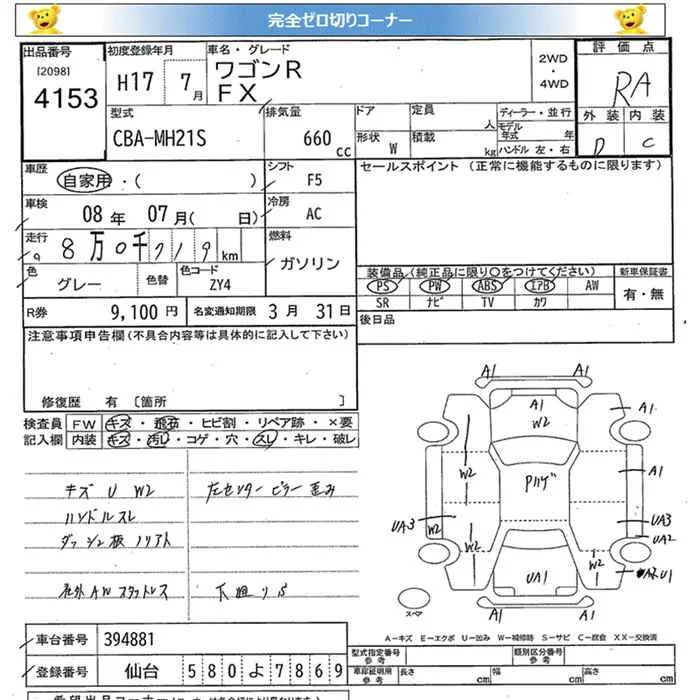 完全ゼロ切りコーナー
出品番号 初度登録年月 車名・グレード 2WD・4WD 評価点
[2098] 4153 H17 7月 ワゴンR FX RA
型式 排気量 ドア 定員 人 ディーラー・並行 外装 内装
CBA-MH21S 660 cc 形状 W 積載 kg モデル年式 年 ハンドル 左・右 D C
車歴 自家用・( ) シフト F5 セールスポイント (正常に機能するものに限ります)
車検 08年 07月( 日) 冷房 AC
走行 8万0千719km 燃料 ガソリン
色 グレー 色替 色コード ZY4
装備品(純正品に限り○をつけてください) 新車保証書
PS PW ABS エアB AW 有・無
SR ナビ TV カワ
R券 9,100円 名変通知期限 3月 31日 後日品
注意事項申告欄(不具合内容等は具体的に記入して下さい)
修復歴 有 [箇所 ]
検査員記入欄 FW キズ・飛石・ヒビ割・リペア跡・×要
内装 キズ・汚レ・コゲ・穴・スレ・キレ・破レ
キズ U W2 左センターピラー歪み
ハンドルスレ
ダッシュ板 ノリアト
社外AWスタットレス 下廻りS
A1 A1
A1 W2 A1
W2 Pハゲ W2 A1
UA3 W2 UA3
UA2
W2 W2
UA1 U1
A1
スペア
A-キズ E-エクボ U-凹み W-補修跡 S-サビ C-腐食 XX-交換済
車台番号 394881 型式指定番号 参考 類別区分番号 参考
登録番号 仙台 580よ7869 車庫証明用 参考 長さ cm 幅 cm 高さ cm